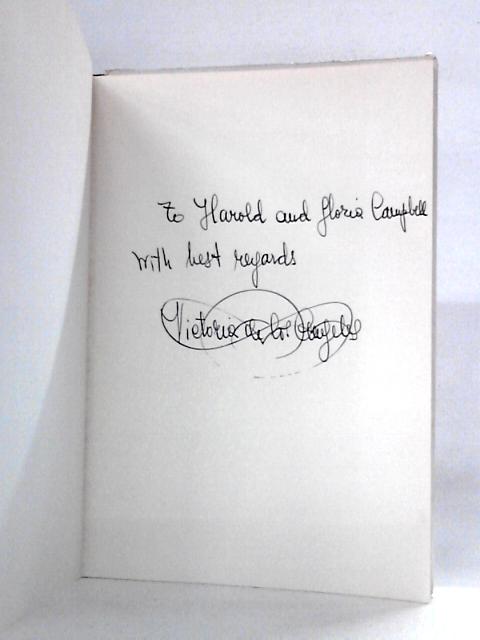 To Harold and Gloria Campbell
With best regards
Victoria de los Angeles